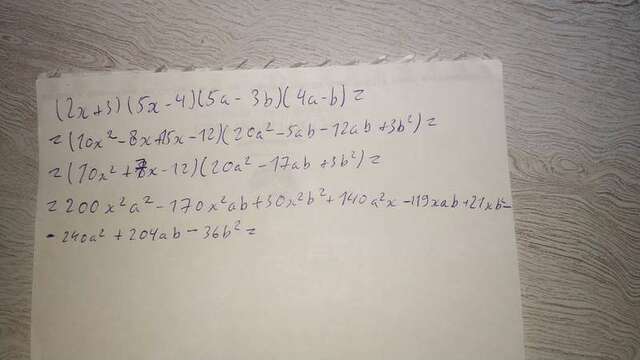 (2x+3)(5x-4)(5a-3b)(4a-b)=
=(10x²-8x+15x-12)(20a²-5ab-12ab+3b²)=
=(10x²+7x-12)(20a²-17ab+3b²)=
=200x²a²-170x²ab+30x²b²+140a²x-119xab+21xb²-
-240a²+204ab-36b²=